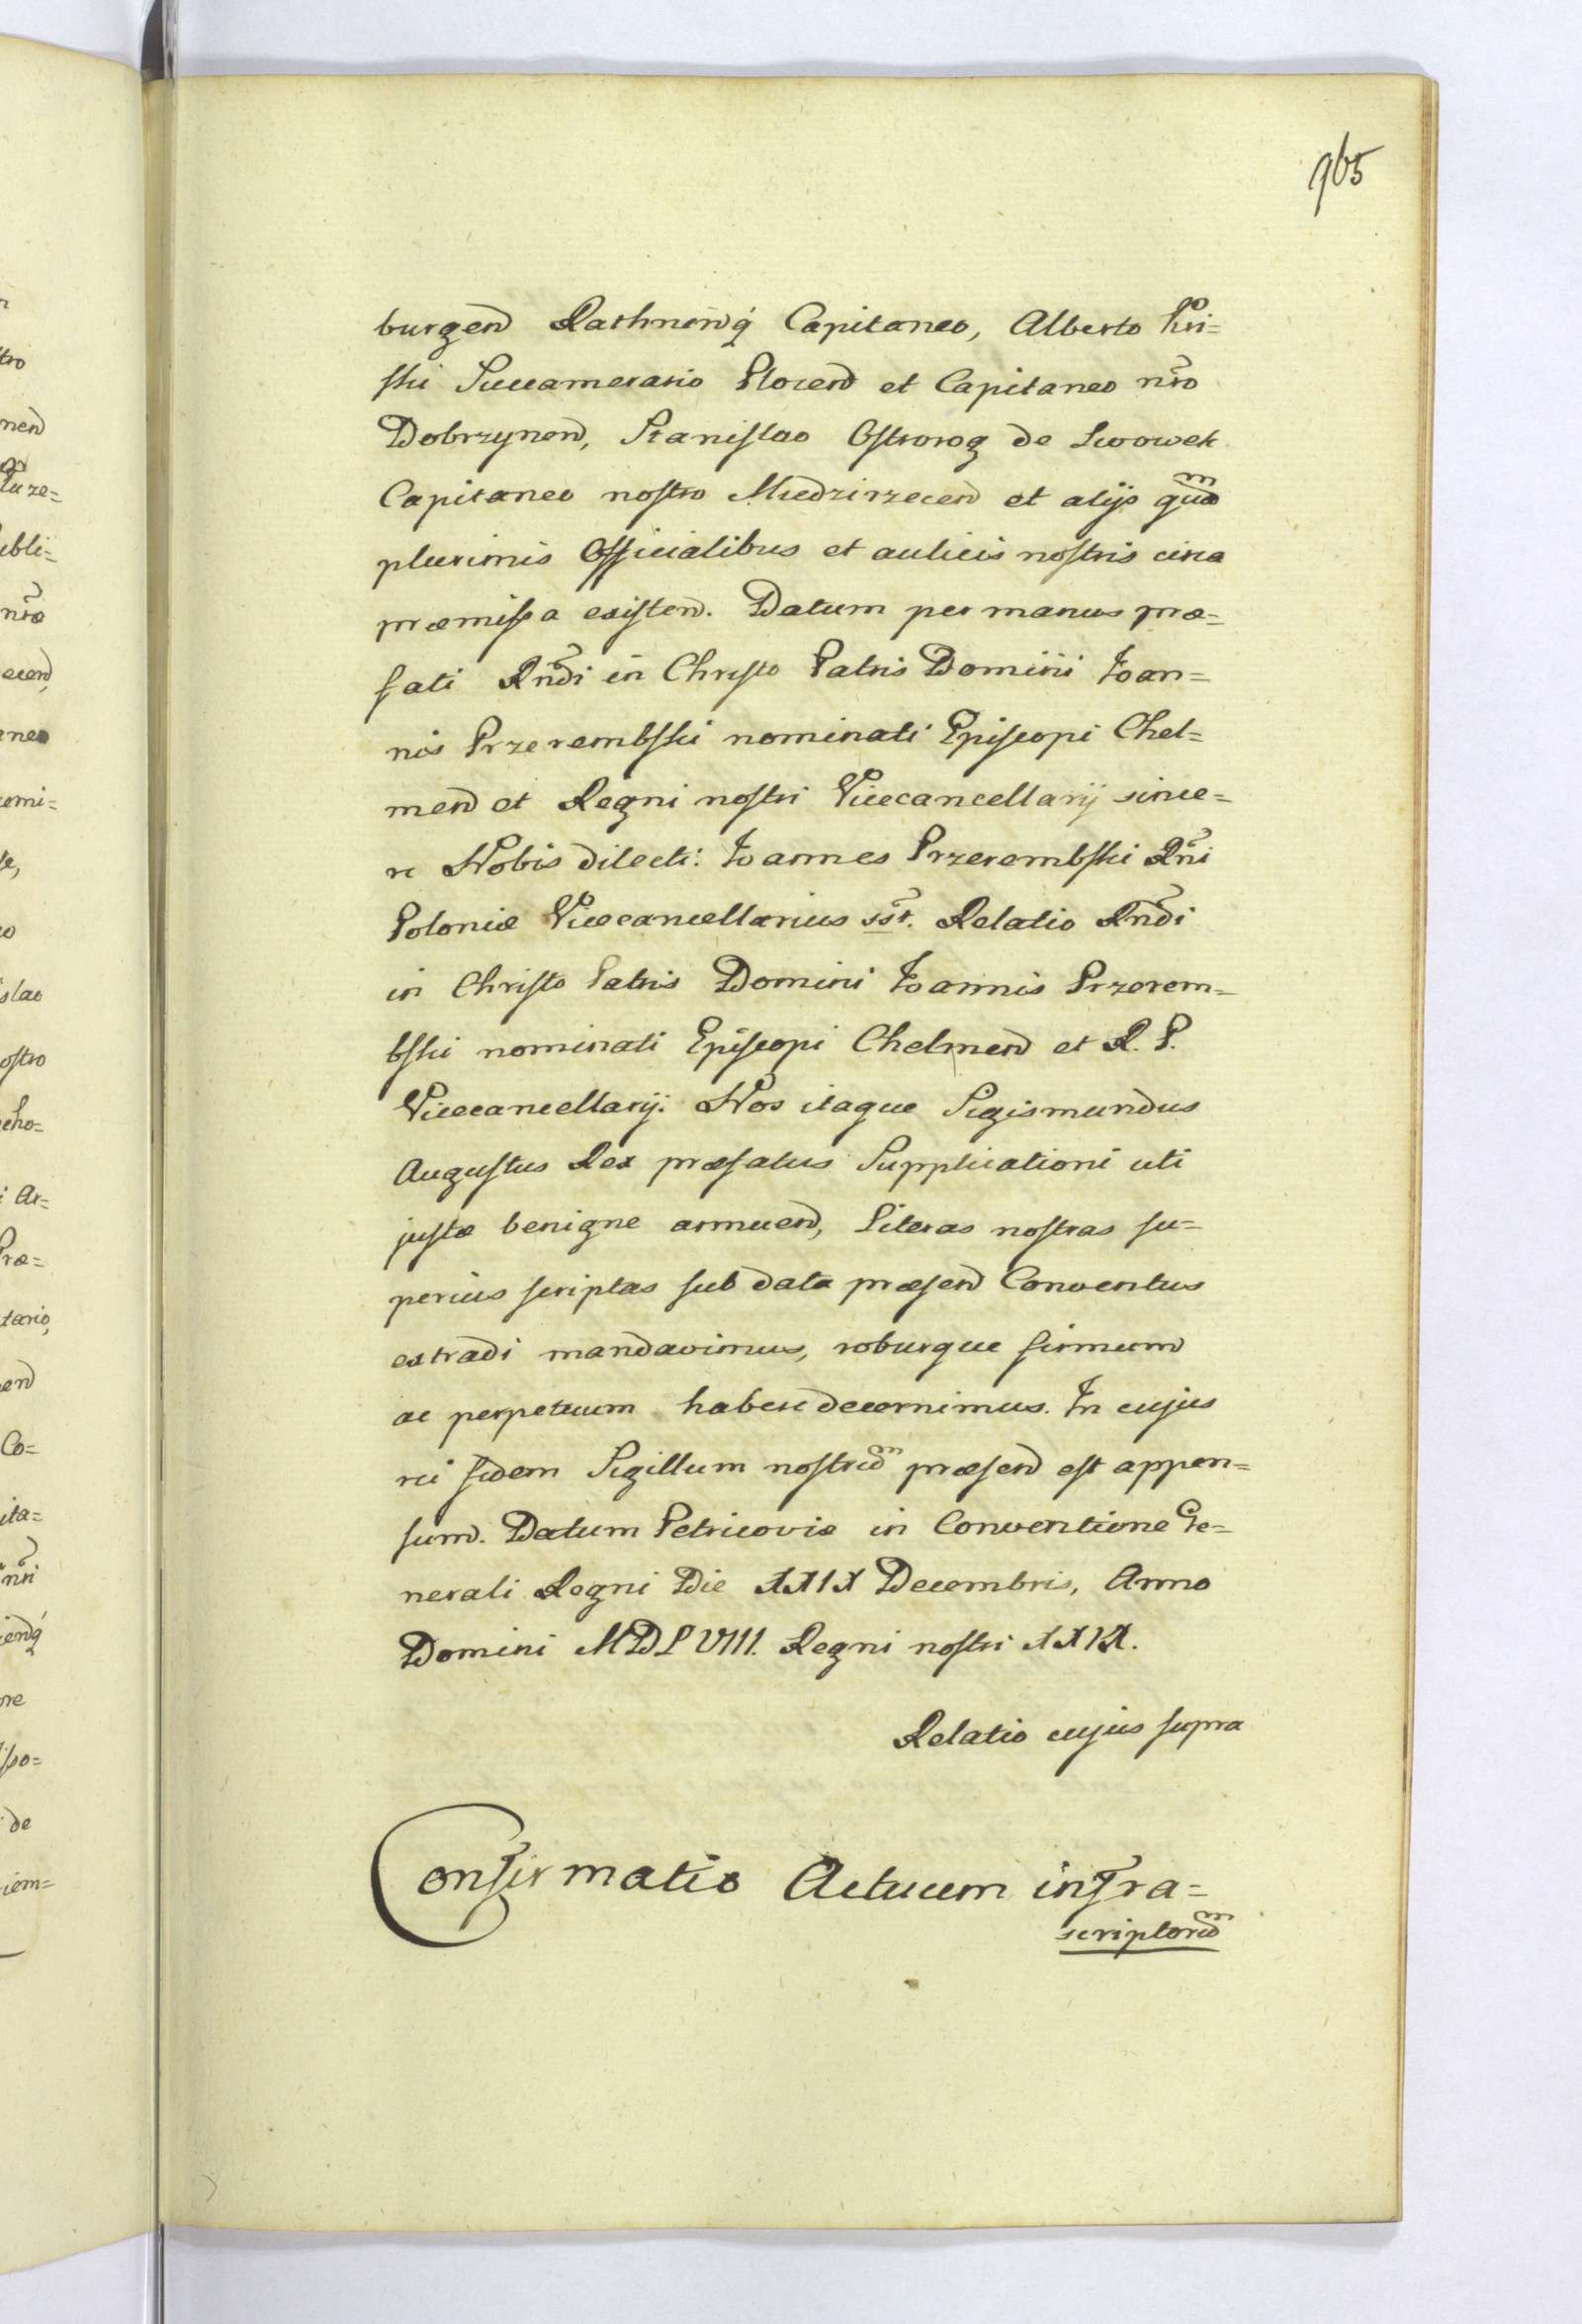 965
burgen Rathnenq́ Capitaneo, Alberto Kri=
ski Succamerario Plocen et Capitaneo nr̃o
Dobrzynen, Stanislao Ostrorog de Lwowek
Capitaneo nostro Miedzirzecen et alijs quam
plurimis Officialibus et aulicis nostris circa
præmissa existen. Datum per manus præ=
fati Rñdi in Christo Patris Domini Ioan=
nis Przerembski nominati Episcopi Chel=
men et Regni nostri Vicecancellarij since=
re Nobis dilecti. Ioannes Przerembski Rñi
Poloniæ Vicecancellarius sst. Relatio Rñdi
in Christo Patris Domini Ioannis Przerem=
bski nominati Episcopi Chelmen et R. P.
Vicecancellarij. Nos itaque Sigismundus
Augustus Rex præfatus Supplicationi uti
justæ benigne annuen, Literas nostras su=
perius scriptas sub data præsen Conventus
extradi mandavimus, roburque firmum
ac perpetuum habere decernimus. In cujus
rei fidem Sigillum nostrum præsen est appen=
sum. Datum Petricoviæ in Conventione Ge=
nerali Regni Die XXIX Decembris, Anno
Domini MDLVIII. Regni nostri XXIX.
Relatio cujus supra
Confirmatio Actuum infra=
scriptorum